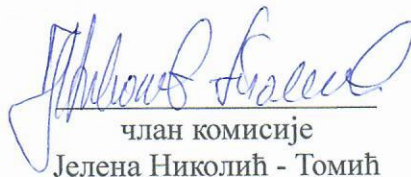 члан комисије
Јелена Николић - Томић